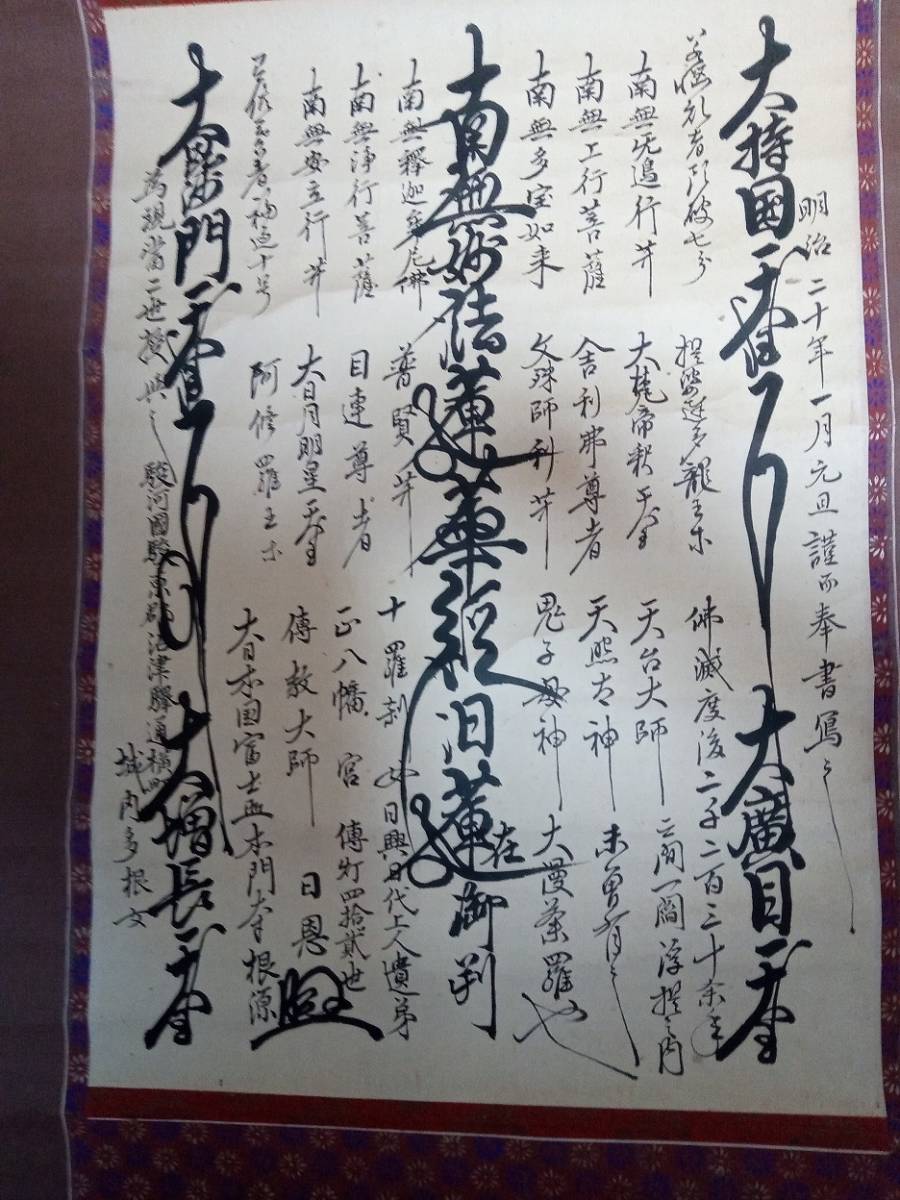 大持國天王
大廣目天王
明治二十年一月元旦謹而奉書寫之
若悩乱者頭破七分
提婆達多龍王等
佛滅度後二千二百三十余年
南無无邉行井
大梵帝釈天王
天台大師
之間一閻浮提之内
南無上行菩薩
舎利弗尊者
天照太神
未曽有之
南無多宝如来
文殊師利井
鬼子母神
大漫荼羅也
南無妙法蓮華経日蓮在御判
南無釋迦牟尼佛
普賢井
十羅刹女
日興日代上人遺弟
南無浄行菩薩
目連尊者
正八幡宮
傳灯四拾貳世
南無安立行井
大日月明星天王
傳教大師
日恩
有供養者福過十号
阿修羅王等
大日本国富士山本門寺根源
大毘沙門天王
大増長天王
為現當二世授與之
駿河國駿東郡沼津驛通横町
城内多根女